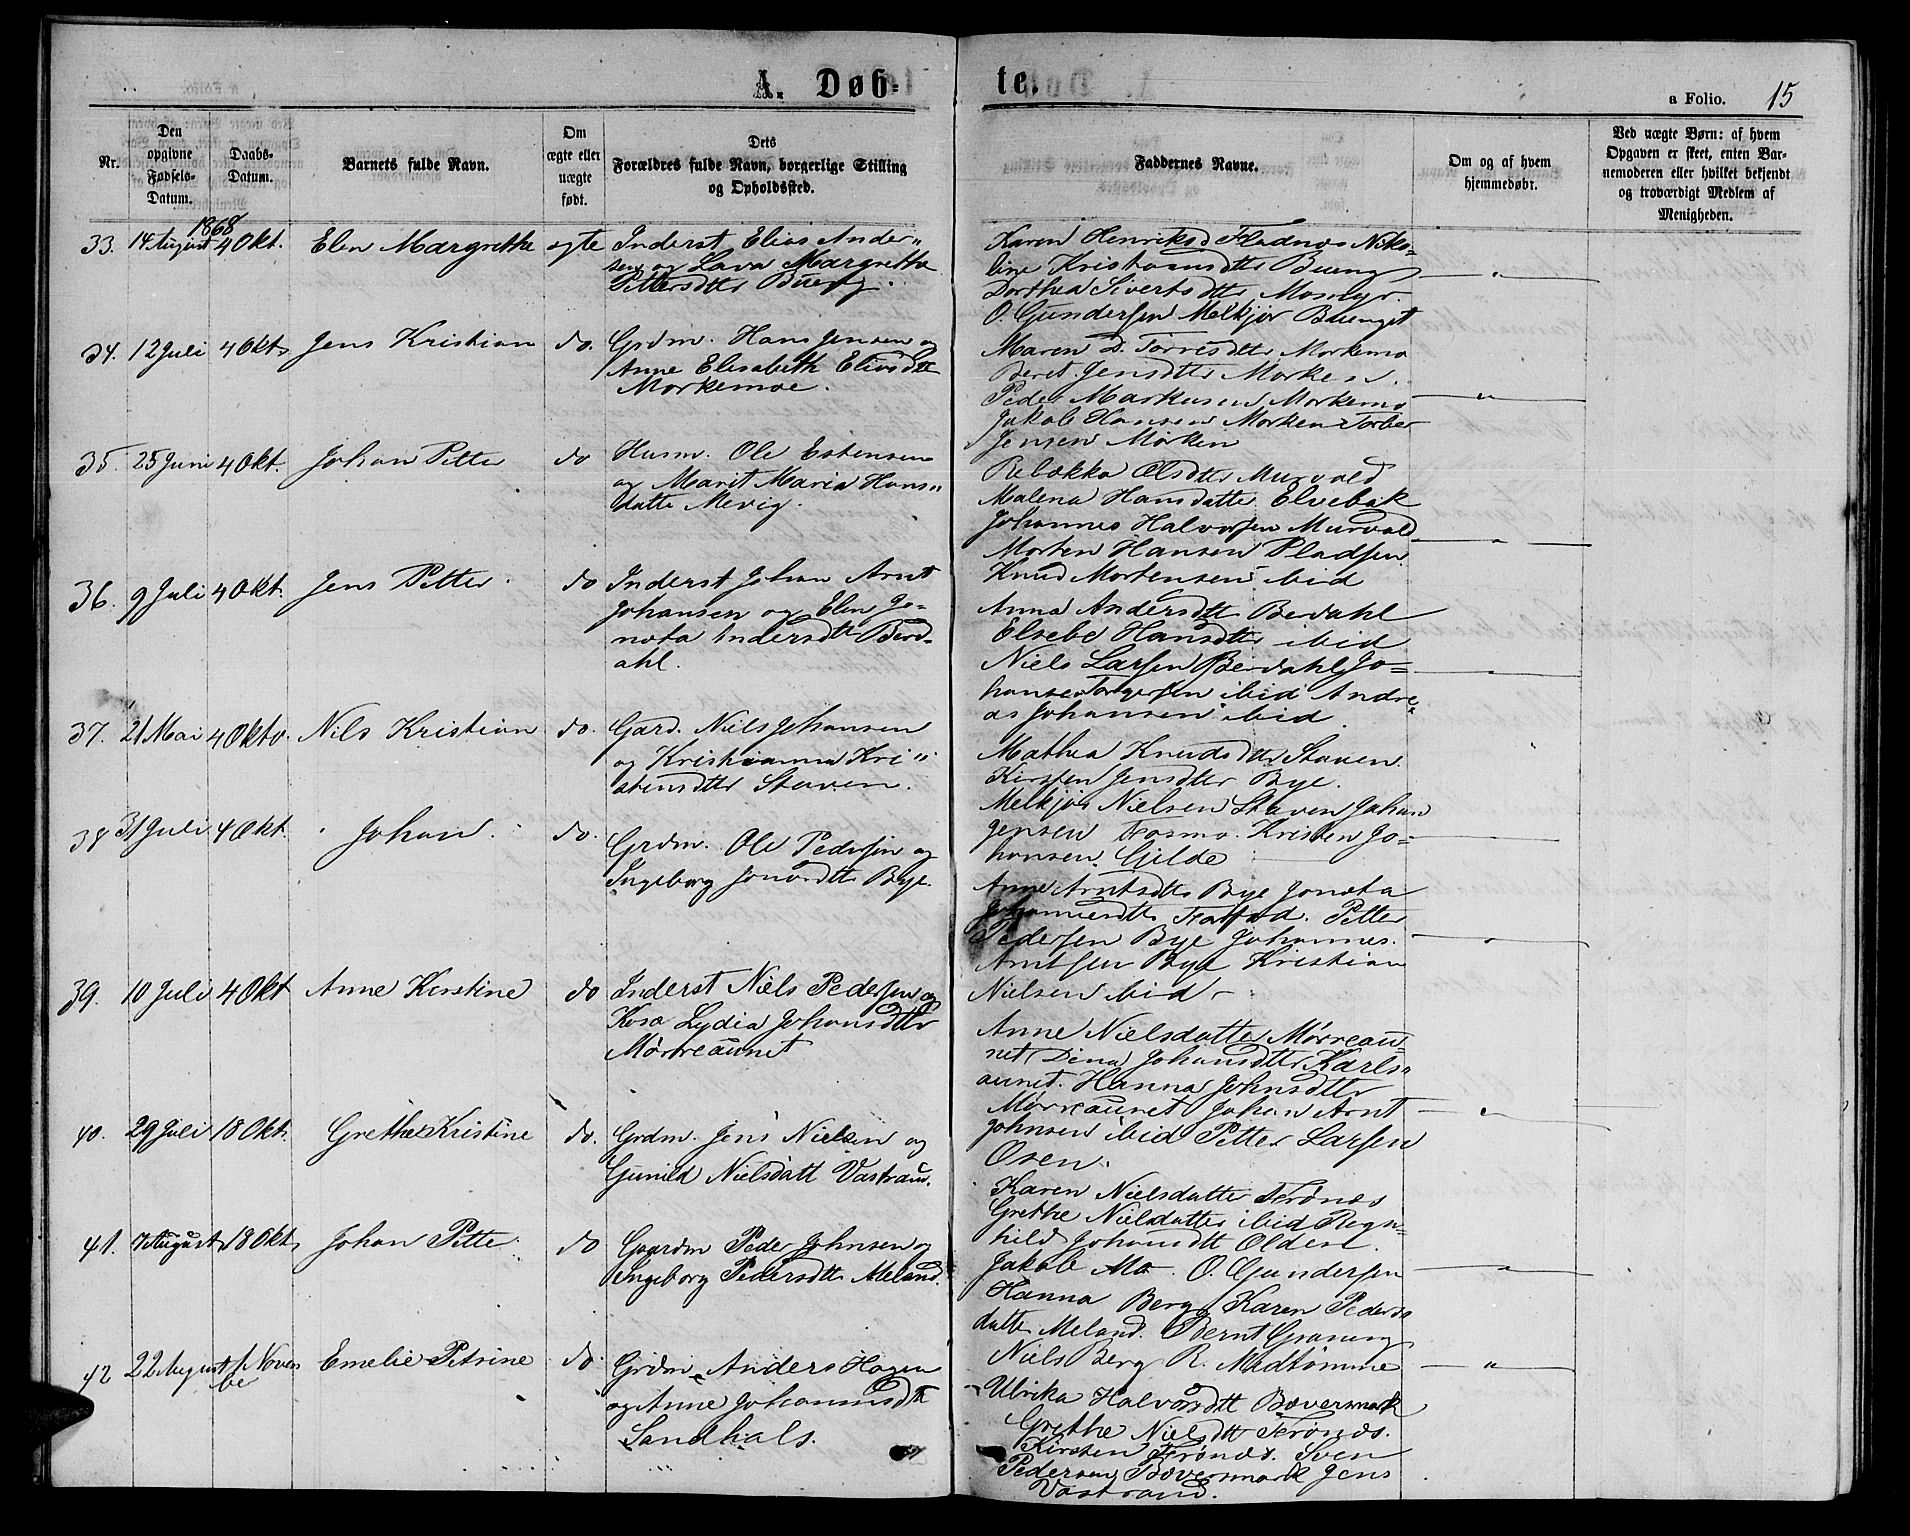 A. Døb-
te.
a Folio. 15
Nr.
Den
opgivne
Fødsels-
Datum.
Daabs-
Datum.
Barnets fulde Navn.
Om
ægte eller
uægte
født.
Dets
Forældres fulde Navn, borgerlige Stilling
og Opholdssted.
Faddernes Navne.
Om og af hvem
hjemmedøbt.
Ved uægte Børn: af hvem
Opgaven er skeet, enten Bar-
nemoderen eller hvilket bekjendt
og troværdigt Medlem af
Menigheden.
1868
33. 14 August 4 Okt. Elen Margrethe ægte Inderst Elias Ander-
sen og Lava Margrethe
Pettersdtr Bueng.
Karen Henriksd Fladnæs Niko-
line Kristiansdtr Bueng
Dorthea Sivertsdtr Momyr.
O. Gundersen Melkjør Buenget
34. 12 Juli 4 Okt. Jens Kristian do. Grdm. Hans Jensen og
Anne Elisabeth Eliasdtt
Morkemoe.
Maren D. Torresdtr Morkemo
Beret Jensdtr Morken.
Peder Markusen Morkemo
Jakob Hansen Morken Torber
Jensen Morken
35. 25 Juni 4 Okt. Johan Petter do Husm. Ole Estensen
og Marit Maria Hans-
datte Mevig.
Rebekka Olsdtr Murvold
Malena Hansdatte Elvebak
Johannes Halvorsen Murvold
Morten Hansen Pladsen.
Knud Mortensen ibid
36. 9 Juli 4 Okt. Jens Petter. do Inderst Johan Arnt
Johansen og Elen Jo-
næta Andersdtt Berd-
ahl.
Anna Andersdtt Berdahl
Elsebe Hansdtr ibid
Niels Larsen Berdahl Jo-
hanses Torgersen ibid Andre-
as Johansen ibid.
37. 21 Mai 4 Okto. Nils Kristian do. Gard. Niels Johansen
og Kristianna Kri-
stensdtr Staven.
Mathea Knudsdtr Staven
Kirsten Jensdtr Bye.
Melkjør Nielsen Staven Johan
Jensen Fosmo. Kristen Jo-
hansen Gilde
38 31 Juli 4 Okt. Johan. do. Grdm. Ole Pedersen og
Ingeborg Jonasdtt Bye.
Anne Arntsdtr Bye Jonæta
Pedersen Bye Johannes.
Arntsen Bye Kristian
Nielsen ibid
39. 10 Juli 4 Okt Anne Kirstine do Inderst Niels Pedersen og
Lydia Johansdtr
Mørreaunet
Anne Nielsdatter Mørreau-
net Dina Johansdtr Karls-
aunet. Hanna Johnsdtr
Mørreaunet Johan Arnt
Johnsen ibid Petter Larsen
Osen.
40. 29 Juli 18 Okt. Grethe Kristine do. Grdm. Jens Nielsen og
Gunild Nielsdatt Vastran.
Karen Nielsdatter Trones
Grethe Nielsdatter ibid Ragn-
hild Johansdtt Olden.
Jakob Mo. O. Gundersen
41. 7 August 18 Okt. Johan Pette do Gaardm Peder Johnsen og
Ingeborg Pedersdtr Meland.
Hanna Berg Karen Peders-
datte Meland. Bernt Graneng
Niels Berg R. Midtømme
42 22 August 1 Novem
be Emelie Petrine do Grdm. Anders Hagen
og Anne Johannesdtt
Sandhals.
Ulrika Halvorsdtt Bøversmark
Grethe Nielsdtt Trønæs.
Kirsten Trønæs. Sven
Pedersen Bøversmark Jens
Vastrand.